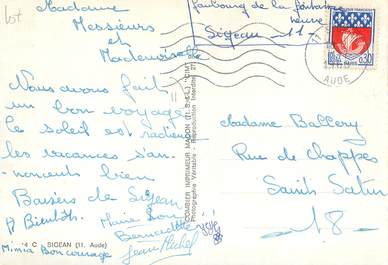 lot
Madame
Messieurs
et
Mademoiselle
Nous avons fait
un bon voyage
le soleil est radieux
les vacances s'an-
noncent bien
Baisers de Sigean
A Bientôt. Marie
Bernadette
Jean Michel
Mimia Bon courage
4 C SIGEAN (11. Aude)
COMBIER IMPRIMEUR MACON (S.-&-L.) "CIM"
Photographie Véritable - Reproduction Interdite
faubourg de la fontaine
neuve
Sigean 11
0,30
AUDE
Madame Ballery
Rue de Chappes
Saint Satur
18